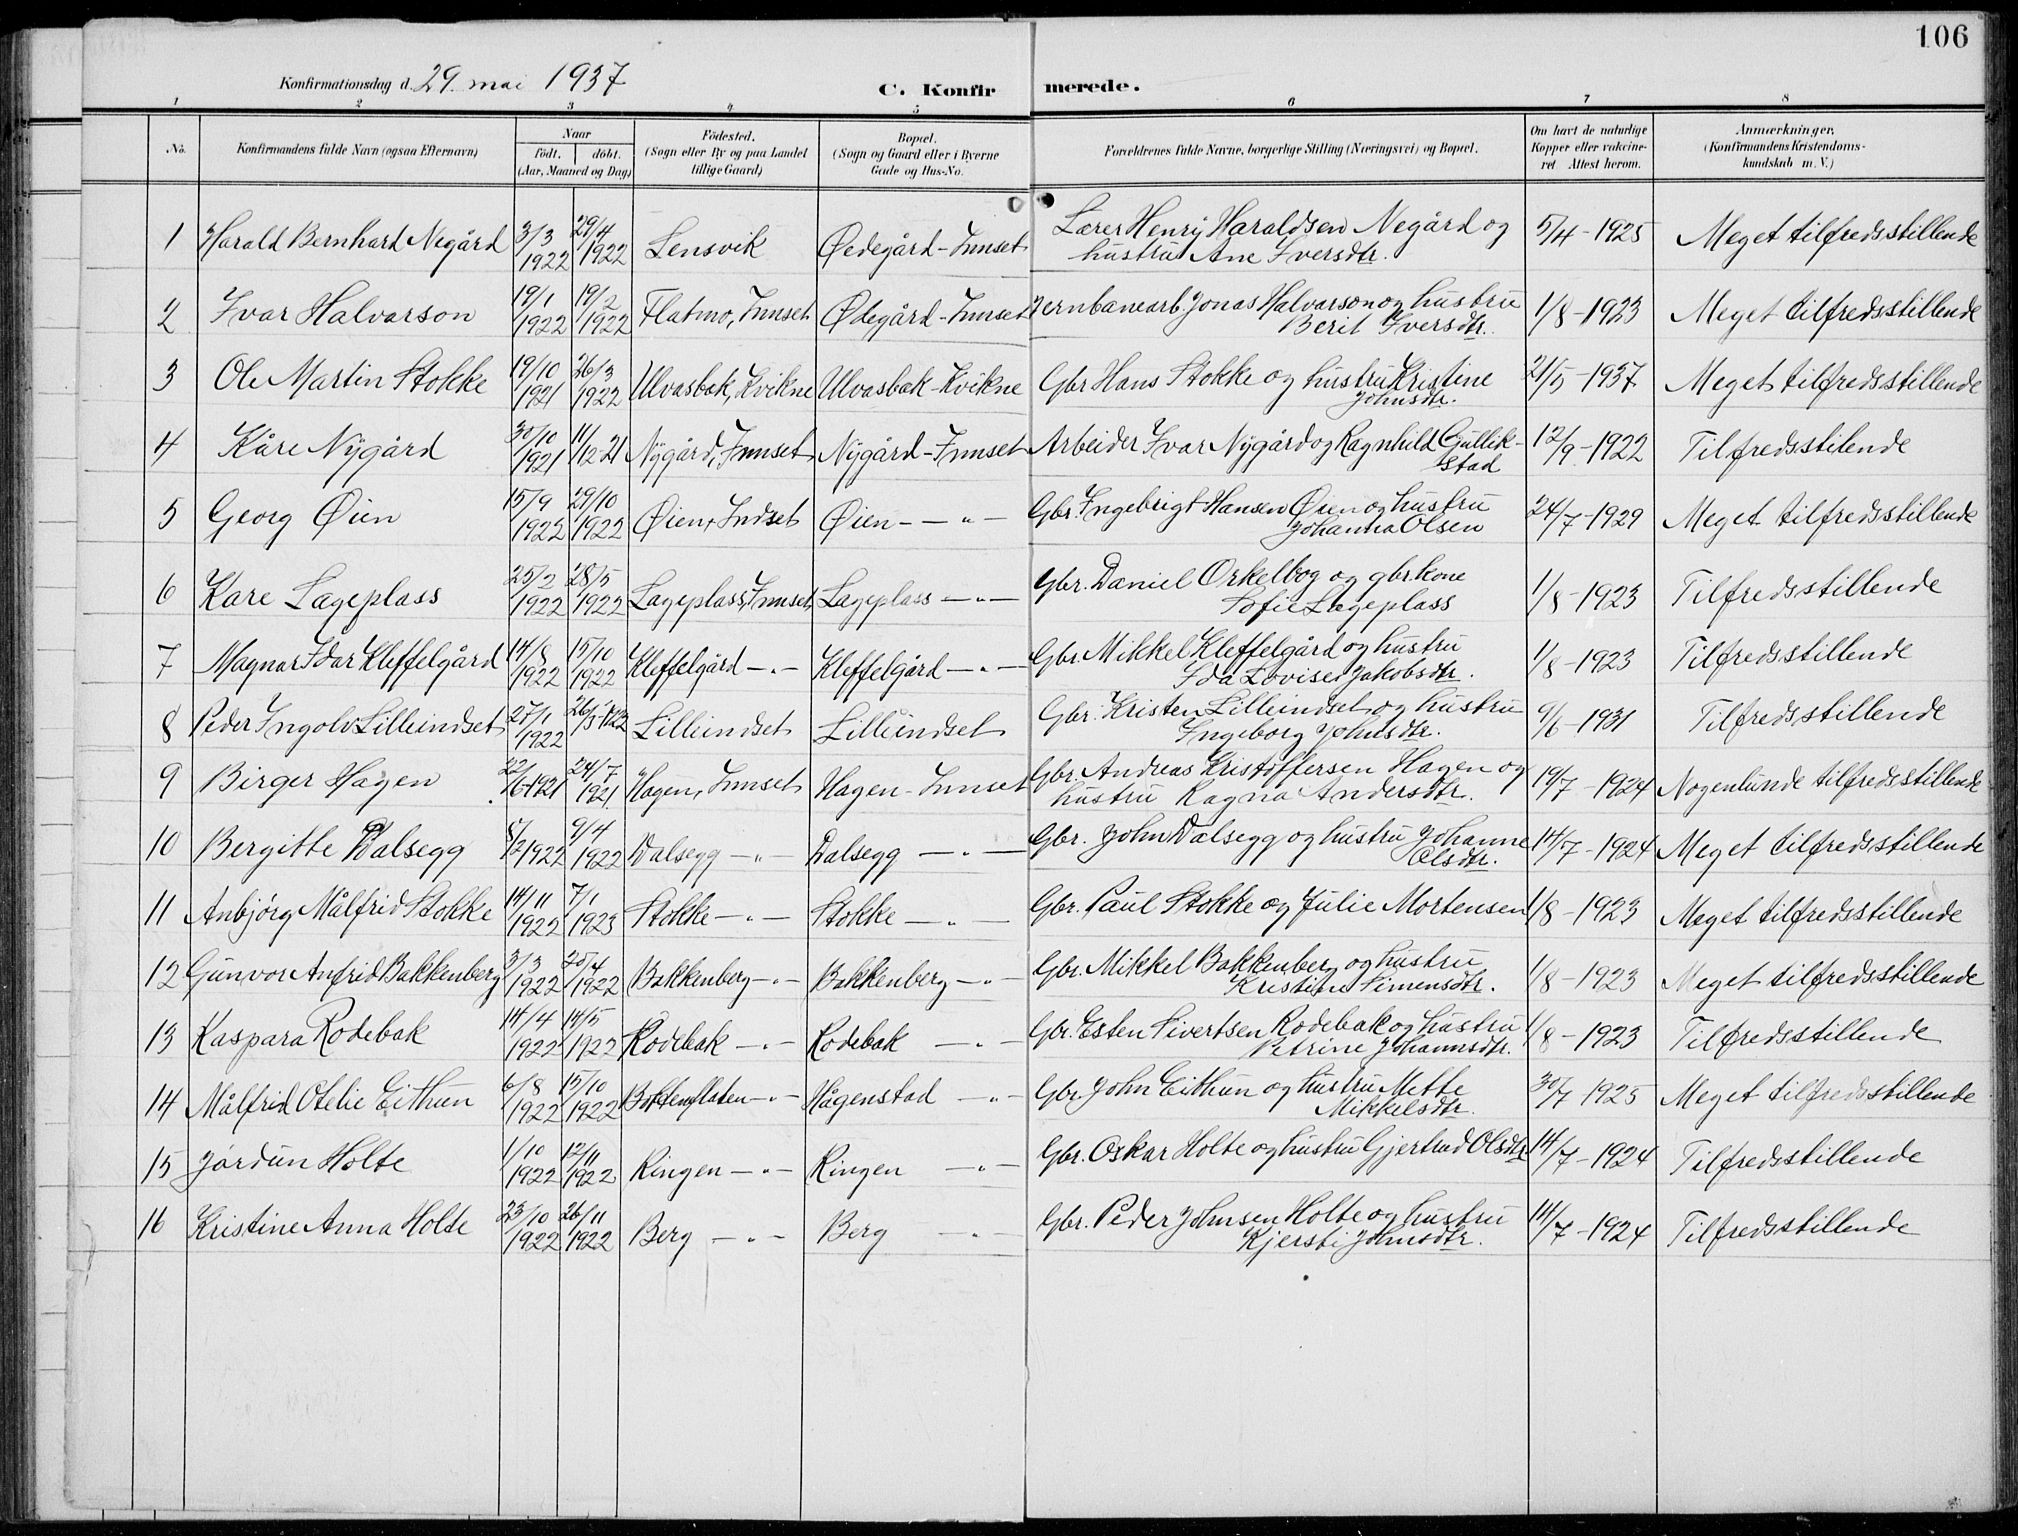 106
Konfirmationsdag d. 29. mai 1937
C. Konfirmerede.
1 2 3 4 5 6 7 8
No.
Konfirmandens fulde Navn (ogsaa Efternavn)
Naar
Født. døbt.
(Aar, Maaned og Dag)
Fødested.
(Sogn eller By og paa Landet
tillige Gaard)
Bopæl.
(Sogn og Gaard eller i Byerne
Gade og Hus-No.
Forældrenes fulde Navne, borgerlige Stilling (Næringsvei) og Bopæl.
Om havt de naturlige
Kopper eller vakcine-
ret Attest herom.
Anmærkninger.
(Konfirmandens Kristendoms-
kundskab m. V.)
1 Harald Bernhard Negård 3/3 1922 29/4 1922 Lensvik Øedegård - Innset Lærer Henry Haraldsen Negård og 5/4 - 1925 Meget tilfredsstillende
hustru Ane Iversdtr.
2 Ivar Halvarson 19/1 1922 19/2 1922 Flatmo, Innset Ødegård - Innset Jernbanearb. Jonas Halvarson og hustru 1/8 - 1923 Meget tilfredsstillende
Berit Iversdtr.
3 Ole Martin Stokke 19/10 1921 26/3 1922 Ulvasbak, Kvikne Ulvasbak - Kvikne Gbr Hans Stokke og hustru Kristine 21/5 - 1937 Meget tilfredsstillende
Johnsdtr.
4 Kåre Nygård 30/10 1921 11/12 21 Nygård, Innset Nygård - Innset Arbeider Ivar Nygård og Ragnhild Gullik- 12/9 - 1922 Tilfredsstilende
stad
5 Georg Øien 15/9 1922 29/10 1922 Øien, Indset Øien - — " — Gbr. Ingebrigt Hansen Øien og hustru 24/7 - 1929 Meget tilfredsstillende
Johanna Olsen
6 Kare Lageplass 25/2 1922 28/5 1922 Lageplass, Innset Lageplass — " — Gbr. Daniel Orkelbog og gbr.kone 1/8 - 1923 Tilfredsstillende
Sofie Lageplass
7 Magnar Idar Kleffelgård 14/8 1922 15/10 1922 Kleffelgård — " — Kleffelgård — " — Gbr. Mikkel Kleffelgård og hustru 1/8 - 1923 Tilfredsstillende
Ida Lovise Jakobsdtr.
8 Peder Ingolv Lilleindset 27/1 1922 26/3 1922 Lilleindset Lilleindset Gbr. Kristen Lilleindset og hustru 9/6 - 1931 Tilfredsstillende
Ingeborg Johnsdtr.
9 Birger Hagen 22/6 1921 24/7 1921 Hagen, Innset Hagen - Innset Gbr. Andreas Kristoffersen Hagen og 19/7 - 1924 Nogenlunde tilfredsstillende
hustru Ragna Andersdtr.
10 Bergitte Dalsegg 5/2 1922 9/4 1922 Dalsegg — " — Dalsegg — " — Gbr. John Dalsegg og hustru Johanne 14/7 - 1924 Meget tilfredsstillende
Olsdtr.
11 Anbjørg Målfrid Stokke 14/11 1922 7/1 1923 Stokke — " — Stokke — " — Gbr. Paul Stokke og Julie Mortensen 1/8 - 1923 Meget tilfredsstillende
12 Gunvor Anfrid Bakkenberg 3/3 1922 25/4 1922 Bakkenberg — " — Bakkenberg — " — Gbr. Mikkel Bakkenberg og hustru 1/8 - 1923 Meget tilfredsstillende
Kristine Simensdtr.
13 Kaspara Rodebak 14/4 1922 14/5 1922 Rodebak — " — Rodebak — " — Gbr. Esten Sivertsen Rodebak og hustru 1/8 - 1923 Tilfredsstillende
Petrine Johannsdtr.
14 Målfrid Otelie Eithun 6/8 1922 15/10 1922 — " — Hågenstad — " — Gbr John Eithun og hustru Mette 30/7 1925 Meget tilfredsstillende
Mikkelsdtr.
15 Jordun Holte 1/10 1922 12/11 1922 Ringen — " — Ringen — " — Gbr. Oskar Holte og hustru Gjertrud Olsdtr 14/7 - 1924 Tilfredsstillende
16 Kristine Anna Holte 23/10 1922 26/11 1922 Berg — " — Berg — " — Gbr. Peder Johnsen Holte og hustru 14/7 - 1924 Tilfredsstillende
Kjersti Johnsdtr.